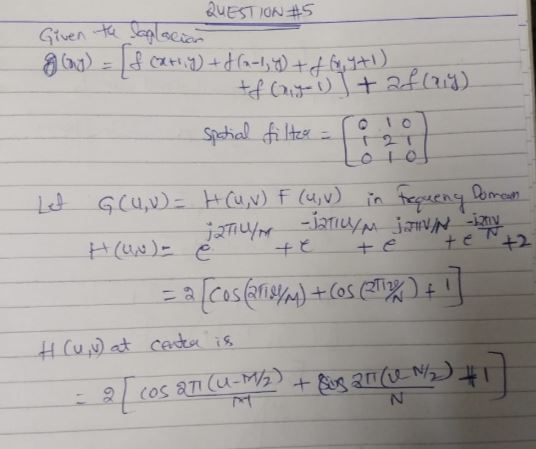 QUESTION #5
Given the Laplacian
g(x,y) = [f(x+1,y) + f(x-1,y) + f(x,y+1)
+f(x,y-1)] + 2f(x,y)
Spatial filter = [0 1 0
1 2 1
0 1 0]
Let G(u,v) = H(u,v) F(u,v) in frequeny Domain
H(u,v) = e^{j2πu/M} + e^{-j2πu/M} + e^{j2πv/N} + e^{-j2πv/N} + 2
= 2[cos(2πu/M) + cos(2πv/N) + 1]
H(u,v) at center is
= 2[cos 2π(u-M/2)/M + cos 2π(v-N/2)/N + 1]